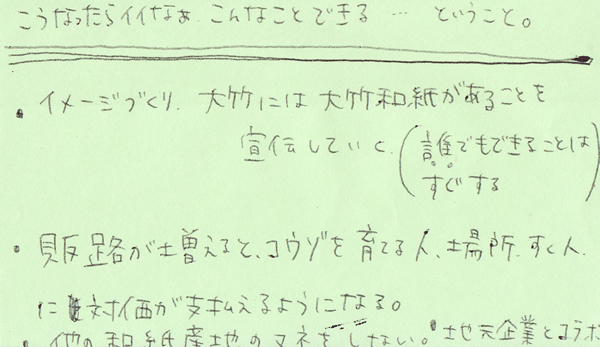 こうなったらイイなぁ こんなことできる … ということ。
・イメージづくり. 大竹には 大竹和紙があることを
宣伝していく. (誰でもできることは
すぐする)
・販路が増えると、コウゾを育てる人、場所、すく人、
に対価が支払えるようになる。
・他の和紙産地のマネをしない。・地元企業とコラボ